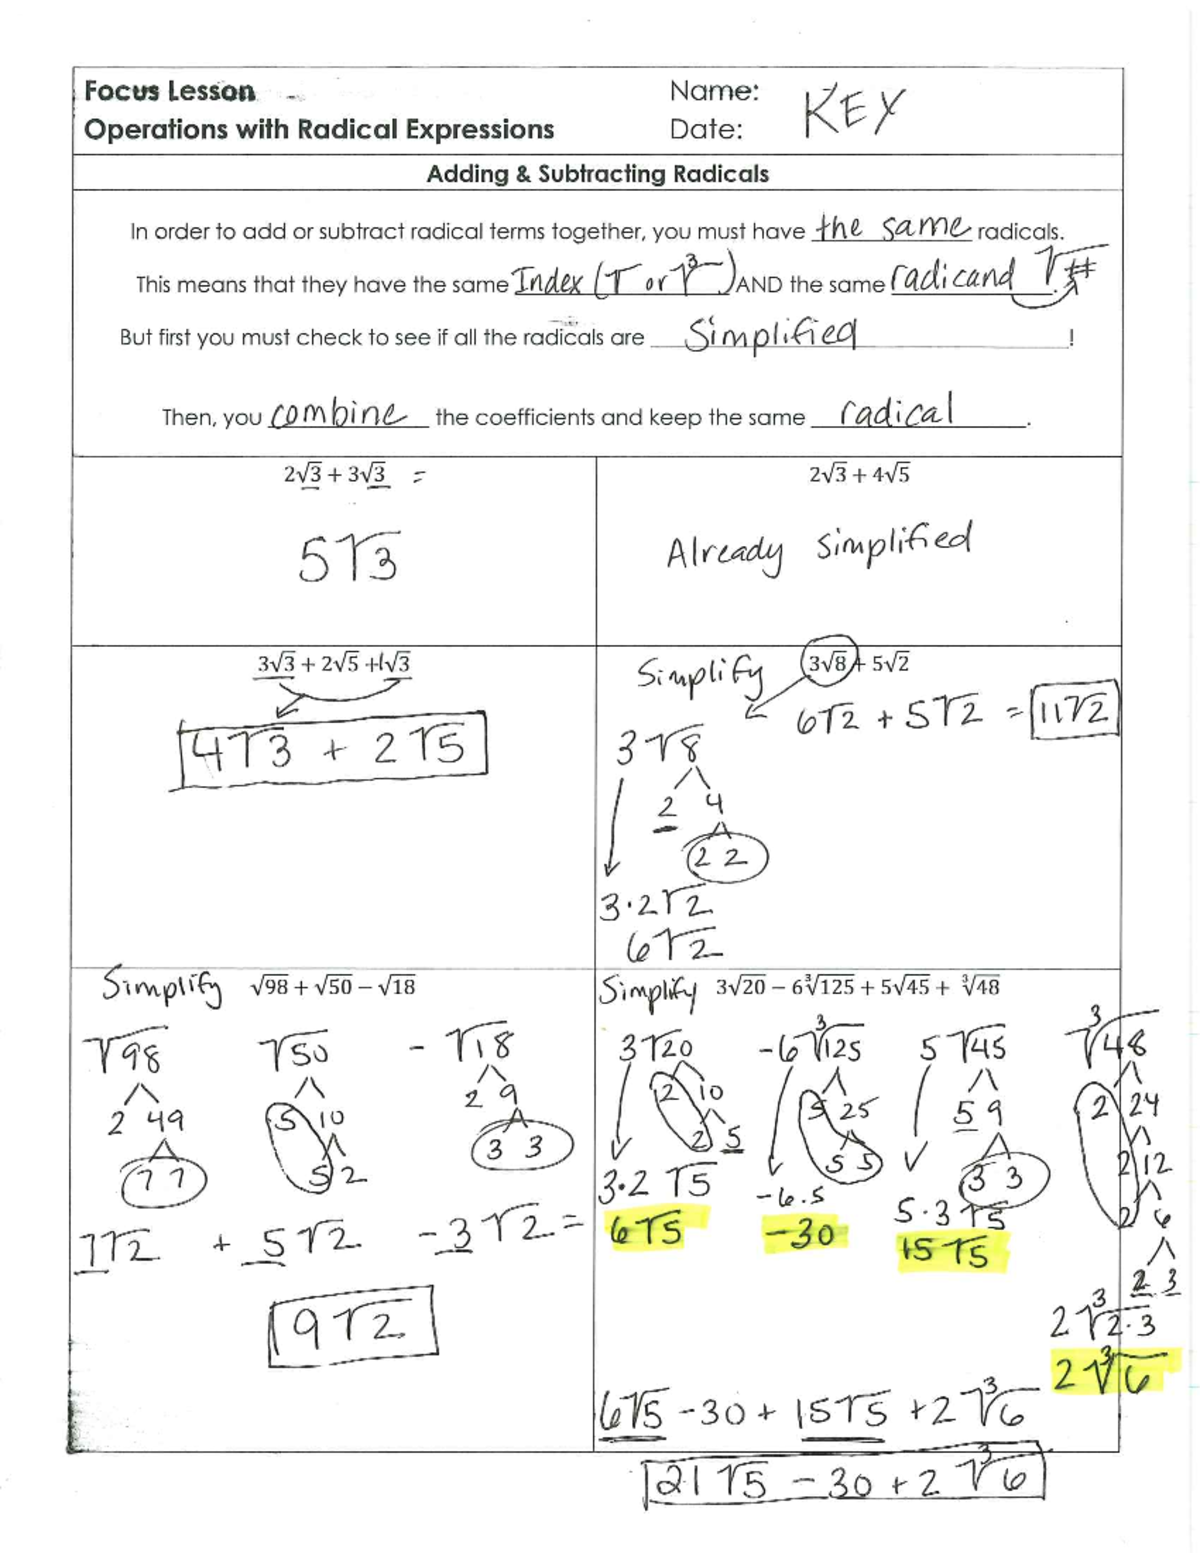 Focus Lesson
Name: KEY
Operations with Radical Expressions
Date:
Adding & Subtracting Radicals
In order to add or subtract radical terms together, you must have the same radicals.
This means that they have the same Index (√ or ∛) AND the same radicand √#.
But first you must check to see if all the radicals are Simplified!
Then, you combine the coefficients and keep the same radical.
2√3 + 3√3 =
5√3
2√3 + 4√5
Already simplified
3√3 + 2√5 + 1√3
4√3 + 2√5
Simplify 3√8 + 5√2
6√2 + 5√2 = 11√2
3√8
2 4
2 2
3·2√2
6√2
Simplify √98 + √50 − √18
√98 √50 - √18
2 49 5 10 2 9
7 7 5 2 3 3
7√2 + 5√2 - 3√2 =
9√2
Simplify 3√20 − 6∛125 + 5√45 + ∛48
3√20 -6∛125 5√45 ∛48
2 10 5 25 5 9 2 24
2 5 5 5 3 3 2 12
3·2√5 -6·5 5·3√5 2 6
6√5 -30 15√5 2 3
2∛2·3
2∛6
6√5 - 30 + 15√5 + 2∛6
21√5 - 30 + 2∛6